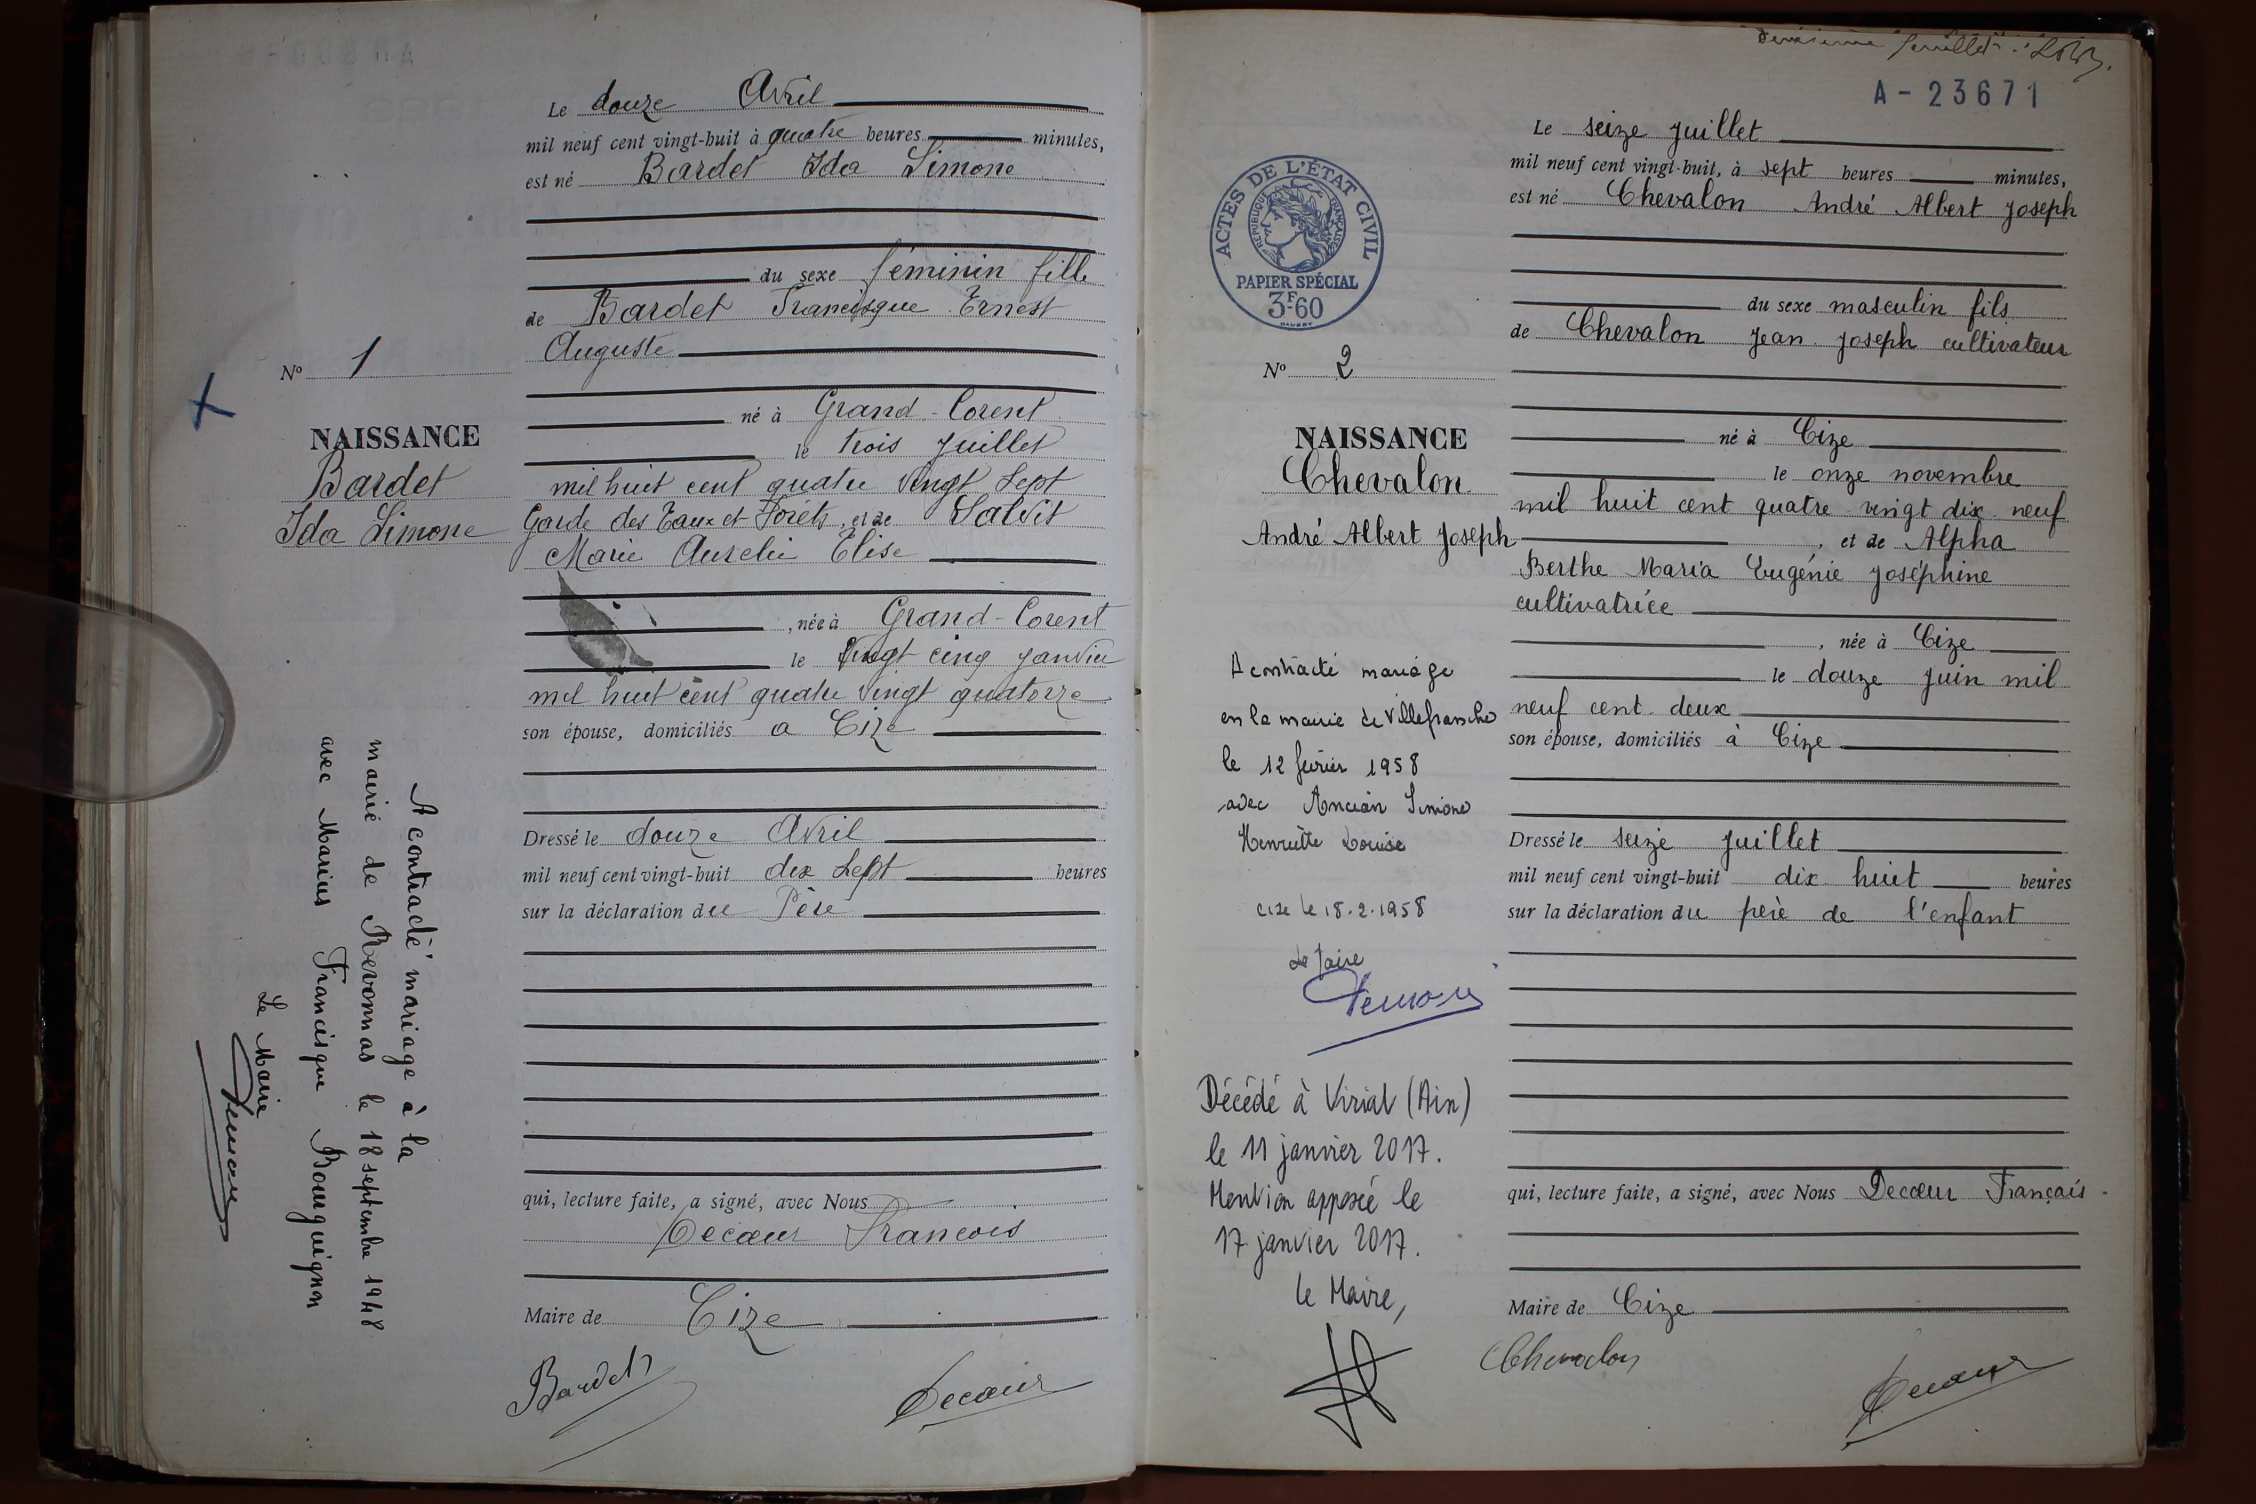 Le douze Avril
mil neuf cent vingt-huit à quatre heures minutes,
est né Bardet Ida Simone
du sexe féminin fille
de Bardet Francisque Ernest
Auguste
né à Grand-Corent
le trois Juillet
mil huit cent quatre vingt sept
Garde des Eaux et Forêts, et de Salvit
Marie Aurelie Elise
, née à Grand-Corent
le vingt cinq janvier
mil huit cent quatre vingt quatorze
son épouse, domiciliés a Cize
Dressé le douze Avril
mil neuf cent vingt-huit dix sept heures
sur la déclaration du Père
qui, lecture faite, a signé, avec Nous
Decœur Francois
Maire de Cize
Bardet
Decœur
No 1
NAISSANCE
Bardet
Ida Simone
A contracté mariage à la
mairie de Revonnas le 18 septembre 1948
avec Marius Francisque Bourguignon
Le Maire
deuxième feuillet
A - 23671
ACTES DE L'ÉTAT CIVIL
RÉPUBLIQUE FRANÇAISE
PAPIER SPÉCIAL
3F60
No 2
NAISSANCE
Chevalon
André Albert Joseph
A contracté mariage
en la mairie de Villefranche
le 12 février 1958
avec Ancian Simone
Henriette Louise
Cize le 18.2.1958
Le Maire
Décédé à Viriat (Ain)
le 11 janvier 2017.
Mention apposée le
17 janvier 2017.
le Maire,
Le seize juillet
mil neuf cent vingt-huit, à sept heures minutes,
est né Chevalon André Albert Joseph
du sexe masculin fils
de Chevalon Jean Joseph cultivateur
né à Cize
le onze novembre
mil huit cent quatre vingt dix neuf
, et de Alpha
Berthe Maria Eugénie Joséphine
cultivatrice
, née à Cize
le douze juin mil
neuf cent deux
son épouse, domiciliés à Cize
Dressé le seize juillet
mil neuf cent vingt-huit dix huit heures
sur la déclaration du père de l'enfant
qui, lecture faite, a signé, avec Nous Decœur Français
Maire de Cize
Chevalon
Decœur